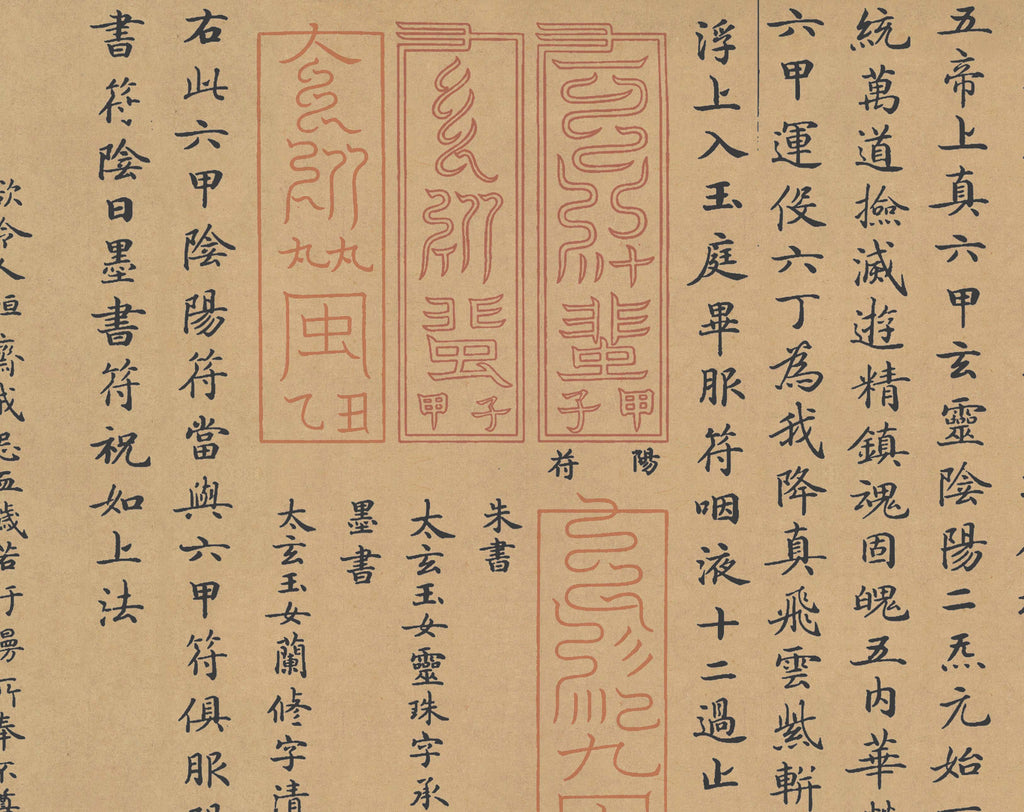 五帝上真六甲玄靈陰陽二炁元始
統萬道撿滅遊精鎮魂固魄五內華
六甲運役六丁為我降真飛雲紫軿
浮上入玉庭畢服符咽液十二過止
陽
符
甲子
子甲
丑乙
朱書
太玄玉女靈珠字承
墨書
太玄玉女蘭修字清
右此六甲陰陽符當與六甲符俱服
書符陰日墨書符祝如上法
欲令人恒齋戒忌五歲若干
所奉不